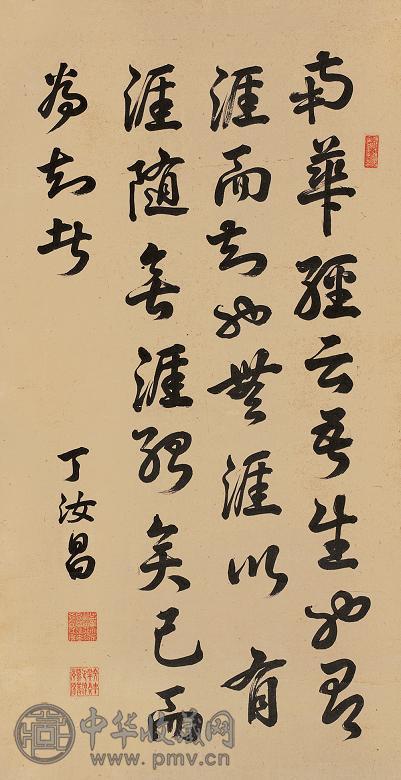 南華經云吾生也有
涯而知也無涯以有
涯隨無涯殆矣已而
為知者
丁汝昌
中华收藏网
www.pmv.cn